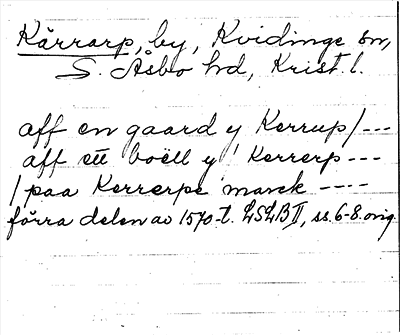 Kärrarp, by, Kvidinge sn,
S. Åsbo hd, Krist. l.
aff en gaard y Kerrup/---
aff ett boëll y Kerrerp---
/paa Kerrerpe marck ----
förra delen av 1570-t. LSLB II, ss. 6-8. orig.